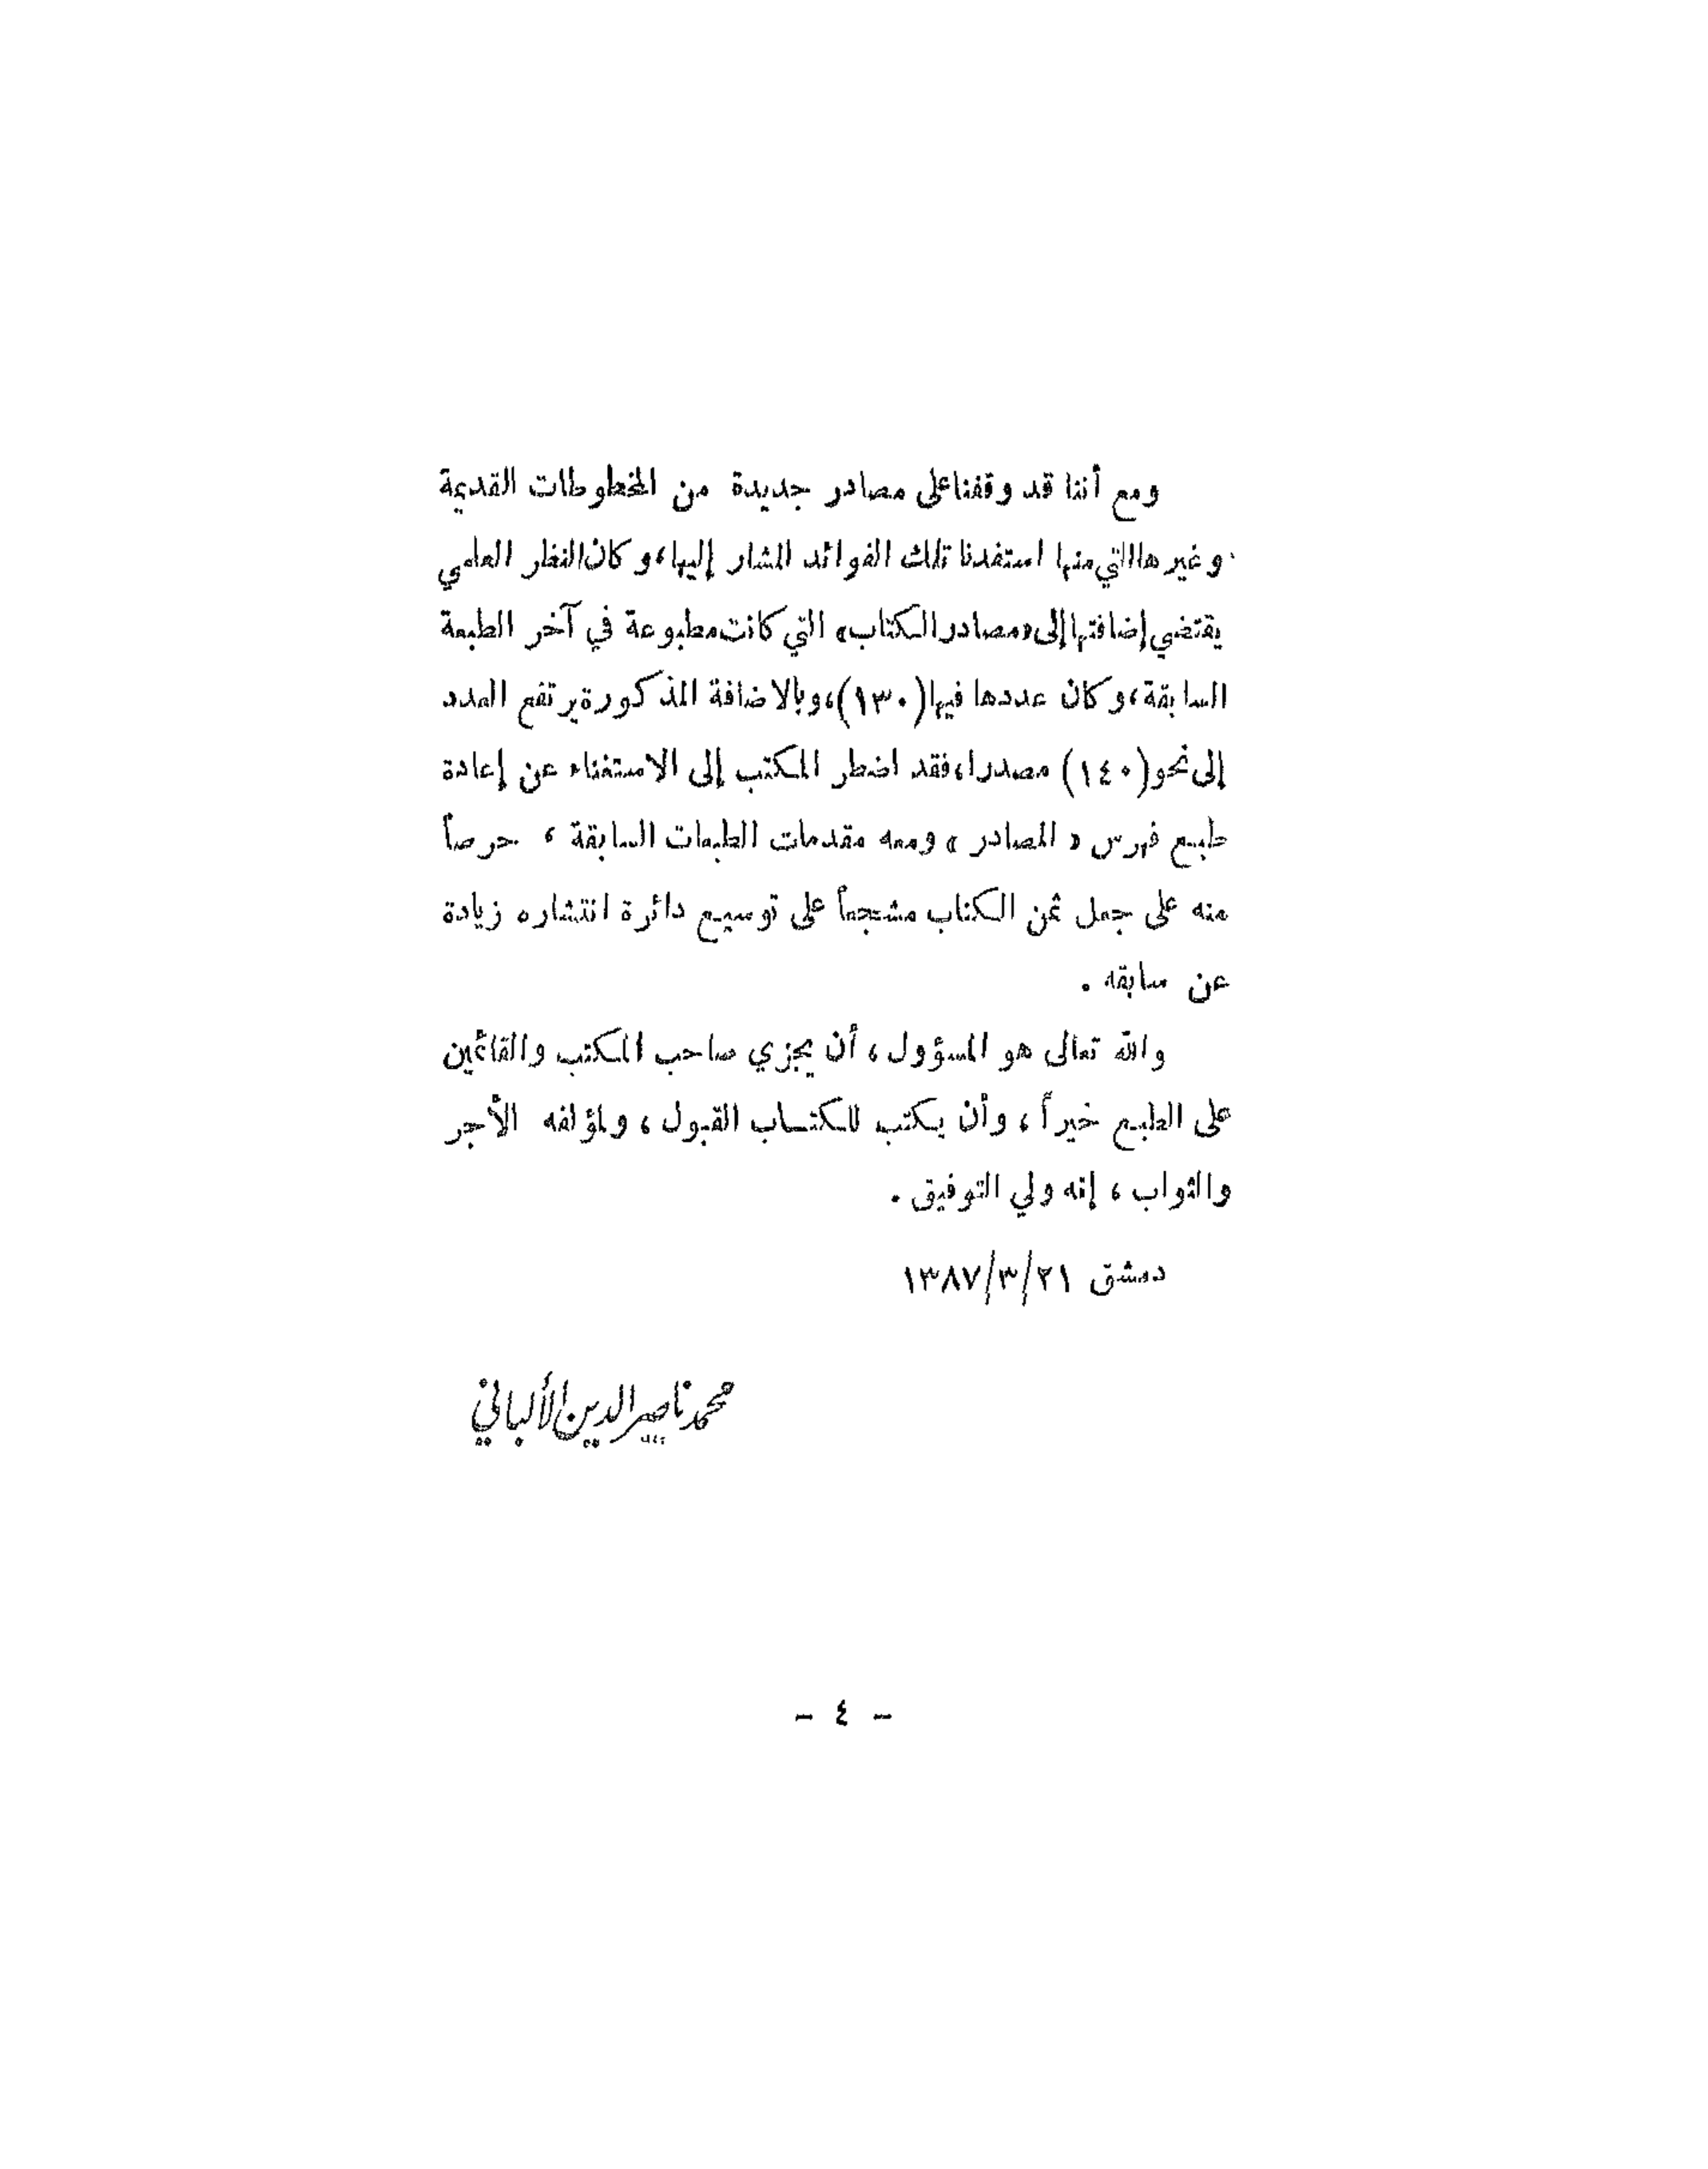 ومع أننا قد وقفنا على مصادر جديدة من المخطوطات القديمة
وغيرها التي منها استفدنا تلك الفوائد المشار إليها، وكان النظر العلمي
يقتضي إضافتها إلى «مصادر الكتاب» التي كانت مطبوعة في آخر الطبعة
السابقة، وكان عددها فيها (١٣٠)، وبالاضافة المذكورة يرتفع العدد
إلى نحو (١٤٠) مصدرا، فقد اضطر المكتب إلى الاستغناء عن إعادة
طبع فهرس « المصادر » ومعه مقدمات الطبعات السابقة ، حرصاً
منه على جعل ثمن الكتاب مشجعاً على توسيع دائرة انتشاره زيادة
عن سابقه .
والله تعالى هو المسؤول ، أن يجزي صاحب المكتب والقائمين
على الطبع خيراً ، وأن يكتب للكتاب القبول ، ولمؤلفه الأجر
والثواب ، إنه ولي التوفيق .
دمشق ٢١/٣/١٣٨٧
محمد ناصر الدين الألباني
- ٤ -